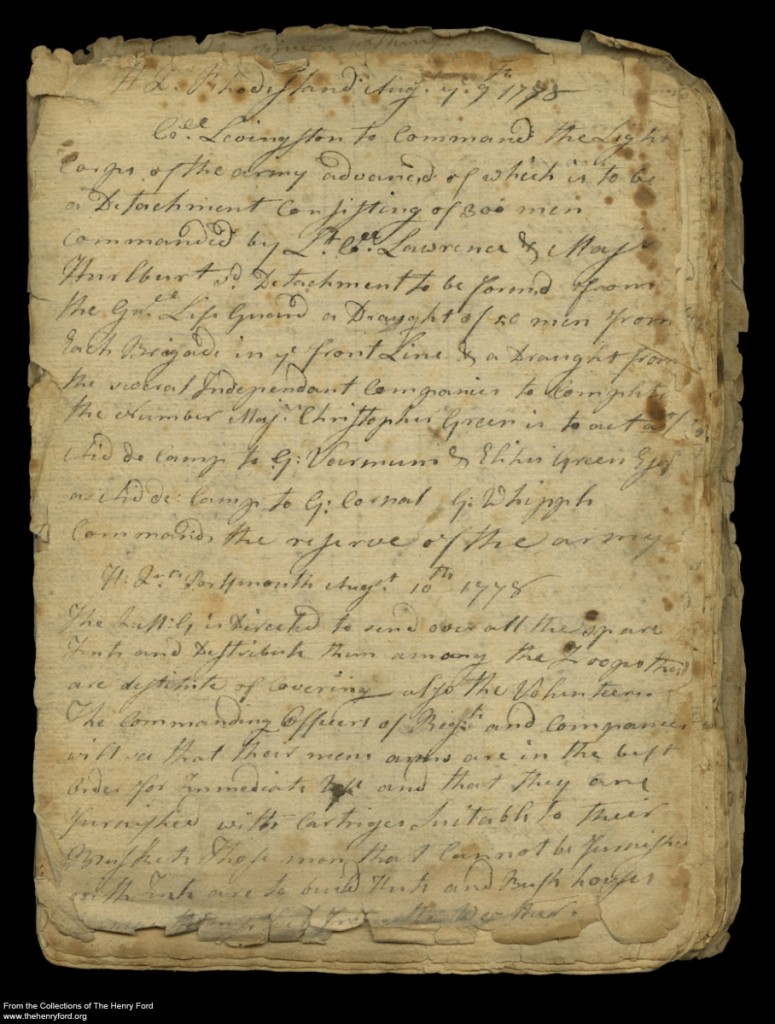 H Q. Rhodisland Aug. ye. 9th 1778
Coll. Levingston to Command the Light
Corps of the army advanced of which is to be
a Detachment Consisting of 300 men
commanded by Lt. Coll. Lawrence & Majr
Hurlburt sd. Detachment to be formd from
the Gnll. Life Guard a Draught of 20 men from
Each Brigade in ye front Line & a Draught from
the several Independant Companies to Complete
the Number Majr. Christopher Green is to act as
Aid de Camp to G: Varmum & Green Esqr
as Aid de Camp to G: Cornal G: Whipple
Commands the reserve of the army
H: Qrts Portsmouth Augst 10th 1778
The is Directed to send over all the spare
Tents and Distribute them among the Troops that
are destitute of Covering also the Volunteers
The Commanding Officers of Regts and Companies
will see that their mens arms are in the best
order for Immediate Use and that they are
furnished with Cartriges Suitable to their
Muskets Those men that Cannot be furnished
with Tents are to build Huts and Bush houses
the Weather.
From the Collections of The Henry Ford
www.thehenryford.org